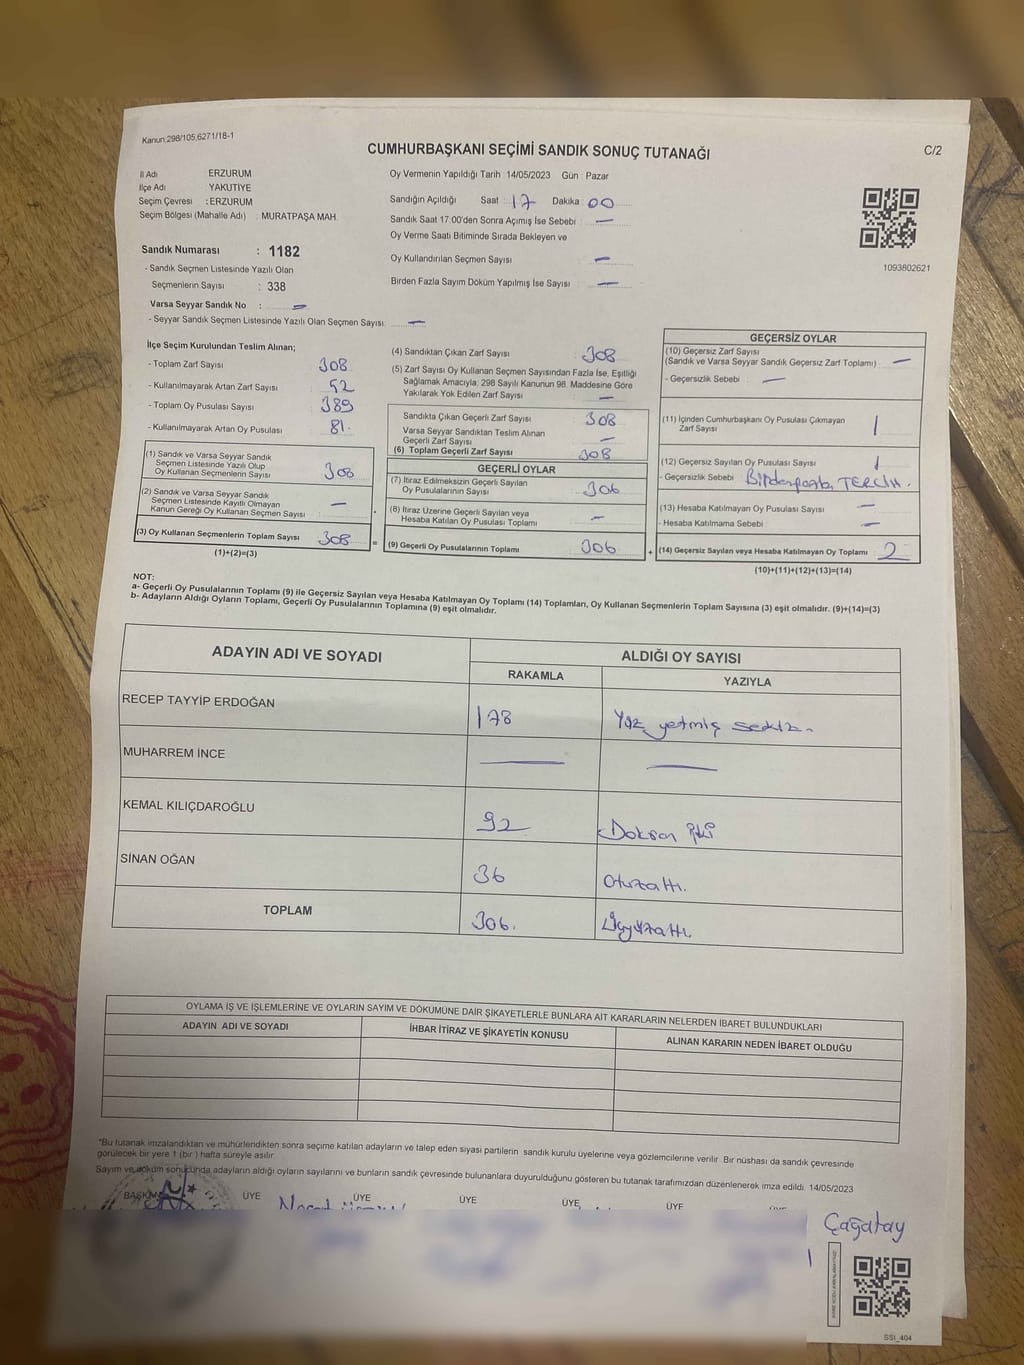 Kanun:298/105,6271/18-1
CUMHURBAŞKANI SEÇİMİ SANDIK SONUÇ TUTANAĞI
C/2
İl Adı ERZURUM
İlçe Adı YAKUTİYE
Seçim Çevresi : ERZURUM
Seçim Bölgesi (Mahalle Adı) : MURATPAŞA MAH.
Oy Vermenin Yapıldığı Tarih 14/05/2023 Gün : Pazar
Sandığın Açıldığı Saat : 17 Dakika : 00
Sandık Saat 17:00'den Sonra Açımış İse Sebebi : —
Oy Verme Saati Bitiminde Sırada Bekleyen ve
Oy Kullandırılan Seçmen Sayısı : —
Birden Fazla Sayım Döküm Yapılmış İse Sayısı : —
1093802621
Sandık Numarası : 1182
- Sandık Seçmen Listesinde Yazılı Olan
Seçmenlerin Sayısı : 338
Varsa Seyyar Sandık No : —
- Seyyar Sandık Seçmen Listesinde Yazılı Olan Seçmen Sayısı: —
İlçe Seçim Kurulundan Teslim Alınan;
- Toplam Zarf Sayısı 308
- Kullanılmayarak Artan Zarf Sayısı : 52
- Toplam Oy Pusulası Sayısı : 389
- Kullanılmayarak Artan Oy Pusulası : 81.
(1) Sandık ve Varsa Seyyar Sandık
Seçmen Listesinde Yazılı Olup
Oy Kullanan Seçmenlerin Sayısı : 308
(2) Sandık ve Varsa Seyyar Sandık
Seçmen Listesinde Kayıtlı Olmayan
Kanun Gereği Oy Kullanan Seçmen Sayısı : —
(3) Oy Kullanan Seçmenlerin Toplam Sayısı 308
(1)+(2)=(3)
(4) Sandıktan Çıkan Zarf Sayısı : 308
(5) Zarf Sayısı Oy Kullanan Seçmen Sayısından Fazla İse, Eşitliği
Sağlamak Amacıyla, 298 Sayılı Kanunun 98. Maddesine Göre
Yakılarak Yok Edilen Zarf Sayısı : —
Sandıkta Çıkan Geçerli Zarf Sayısı : 308
Varsa Seyyar Sandıktan Teslim Alınan
Geçerli Zarf Sayısı : —
(6) Toplam Geçerli Zarf Sayısı : 308
GEÇERLİ OYLAR
(7) İtiraz Edilmeksizin Geçerli Sayılan
Oy Pusulalarının Sayısı : 306
(8) İtiraz Üzerine Geçerli Sayılan veya
Hesaba Katılan Oy Pusulası Toplamı : —
(9) Geçerli Oy Pusulalarının Toplamı : 306
GEÇERSİZ OYLAR
(10) Geçersiz Zarf Sayısı
(Sandık ve Varsa Seyyar Sandık Geçersiz Zarf Toplamı) : —
- Geçersizlik Sebebi : —
(11) İçinden Cumhurbaşkanı Oy Pusulası Çıkmayan
Zarf Sayısı : 1
(12) Geçersiz Sayılan Oy Pusulası Sayısı : 1
- Geçersizlik Sebebi : Birdenfazla TERCİH.
(13) Hesaba Katılmayan Oy Pusulası Sayısı : —
- Hesaba Katılmama Sebebi : —
(14) Geçersiz Sayılan veya Hesaba Katılmayan Oy Toplamı : 2
(10)+(11)+(12)+(13)=(14)
NOT:
a- Geçerli Oy Pusulalarının Toplamı (9) ile Geçersiz Sayılan veya Hesaba Katılmayan Oy Toplamı (14) Toplamları, Oy Kullanan Seçmenlerin Toplam Sayısına (3) eşit olmalıdır. (9)+(14)=(3)
b- Adayların Aldığı Oyların Toplamı, Geçerli Oy Pusulalarının Toplamına (9) eşit olmalıdır.
ADAYIN ADI VE SOYADI
ALDIĞI OY SAYISI
RAKAMLA YAZIYLA
RECEP TAYYİP ERDOĞAN 178 Yüz yetmiş sekiz.
MUHARREM İNCE — —
KEMAL KILIÇDAROĞLU 92 Doksan iki
SİNAN OĞAN 36 Otuzaltı.
TOPLAM 306. Üçyüzaltı.
OYLAMA İŞ VE İŞLEMLERİNE VE OYLARIN SAYIM VE DÖKÜMÜNE DAİR ŞİKAYETLERLE BUNLARA AİT KARARLARIN NELERDEN İBARET BULUNDUKLARI
ADAYIN ADI VE SOYADI İHBAR İTİRAZ VE ŞİKAYETİN KONUSU ALINAN KARARIN NEDEN İBARET OLDUĞU
*Bu tutanak imzalandıktan ve mühürlendikten sonra seçime katılan adayların ve talep eden siyasi partilerin sandık kurulu üyelerine veya gözlemcilerine verilir. Bir nüshası da sandık çevresinde
görülecek bir yere 1 (bir) hafta süreyle asılır.
Sayım ve döküm sonucunda adayların aldığı oyların sayılarını ve bunların sandık çevresinde bulunanlara duyurulduğunu gösteren bu tutanak tarafımızdan düzenlenerek imza edildi. 14/05/2023
BAŞKAN ÜYE ÜYE ÜYE ÜYE ÜYE
Çağatay
SSI_404